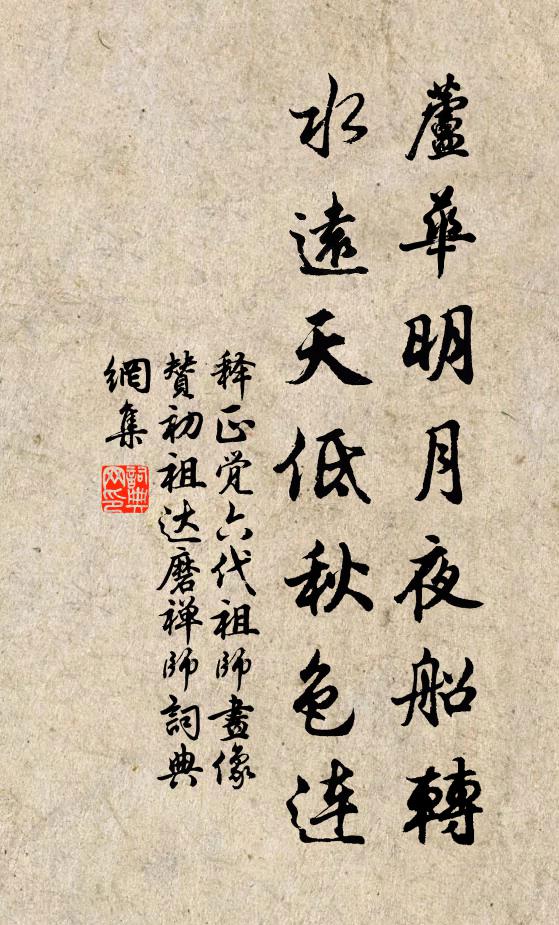 蘆華明月夜船轉
水遠天低秋色連
释正觉六代祖师畫像
赞初祖达磨禅师詞典
網集
詞典網印